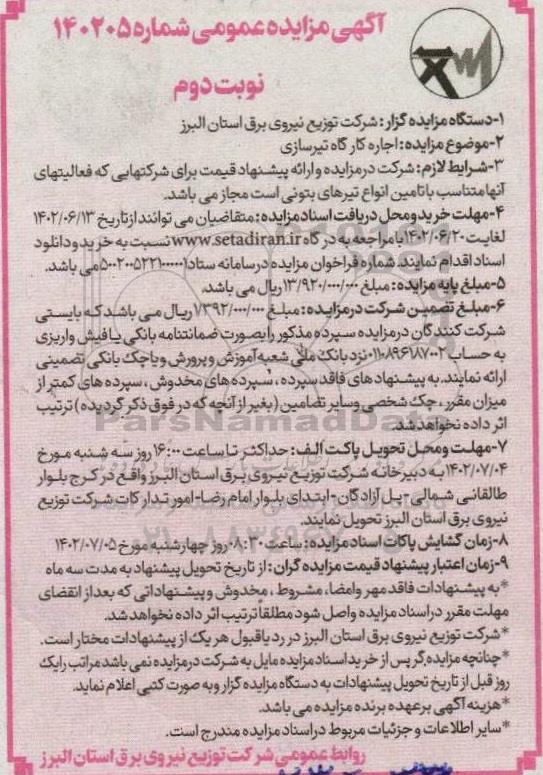 آگهی مزایده عمومی شماره ۱۴۰۲۰۵
نوبت دوم
۱-دستگاه مزایده گزار: شرکت توزیع نیروی برق استان البرز
۲-موضوع مزایده: اجاره کارگاه تیرسازی
۳-شرایط لازم: شرکت در مزایده و ارائه پیشنهاد قیمت برای شرکتهایی که فعالیتهای
آنها متناسب با تامین انواع تیرهای بتونی است مجاز می باشد.
۴-مهلت خرید و محل دریافت اسناد مزایده: متقاضیان می توانند از تاریخ ۱۴۰۲/۰۶/۱۳
لغایت ۱۴۰۲/۰۶/۲۰ با مراجعه به درگاه www.setadiran.ir نسبت به خرید و دانلود
اسناد اقدام نمایند. شماره فراخوان مزایده در سامانه ستاد ۵۰۰۲۰۰۵۲۲۱۰۰۰۰۰۱ می باشد.
۵-مبلغ پایه مزایده: مبلغ ۱۳/۹۲۰/۰۰۰/۰۰۰ ریال می باشد.
۶-مبلغ تضمین شرکت در مزایده: مبلغ ۷۳۹۲/۰۰۰/۰۰۰ ریال می باشد که بایستی
شرکت کنندگان در مزایده سپرده مذکور را بصورت ضمانتنامه بانکی یا فیش واریزی
به حساب ۰۱۱۰۸۹۶۱۸۷۰۰۲ نزد بانک ملی شعبه آموزش و پرورش و یا چک بانکی تضمینی
ارائه نمایند. به پیشنهاد های فاقد سپرده ، سپرده های مخدوش ، سپرده های کمتر از
میزان مقرر ، چک شخصی و سایر تضامین (بغیر از آنچه که در فوق ذکر گردیده) ترتیب
اثر داده نخواهد شد.
۷-مهلت و محل تحویل پاکت الف: حداکثر تا ساعت ۱۶:۰۰ روز سه شنبه مورخ
۱۴۰۲/۰۷/۰۴ به دبیرخانه شرکت توزیع نیروی برق استان البرز واقع در کرج بلوار
طالقانی شمالی - پل آزادگان - ابتدای بلوار امام رضا - امور تدارکات شرکت توزیع
نیروی برق استان البرز تحویل نمایند.
۸-زمان گشایش پاکات اسناد مزایده: ساعت ۰۸:۳۰ روز چهارشنبه مورخ ۱۴۰۲/۰۷/۰۵
۹-زمان اعتبار پیشنهاد قیمت مزایده گران: از تاریخ تحویل پیشنهاد به مدت سه ماه
*به پیشنهادات فاقد مهر و امضا، مشروط ، مخدوش و پیشنهاداتی که بعد از انقضای
مهلت مقرر در اسناد مزایده واصل شود مطلقا ترتیب اثر داده نخواهد شد.
*شرکت توزیع نیروی برق استان البرز در رد یا قبول هر یک از پیشنهادات مختار است.
*چنانچه مزایده گر پس از خرید اسناد مزایده مایل به شرکت در مزایده نمی باشد مراتب را یک
روز قبل از تاریخ تحویل پیشنهادات به دستگاه مزایده گزار و به صورت کتبی اعلام نماید.
*هزینه آگهی بر عهده برنده مزایده می باشد.
*سایر اطلاعات و جزئیات مربوط در اسناد مزایده مندرج است.
روابط عمومی شرکت توزیع نیروی برق استان البرز
ParsNamadData